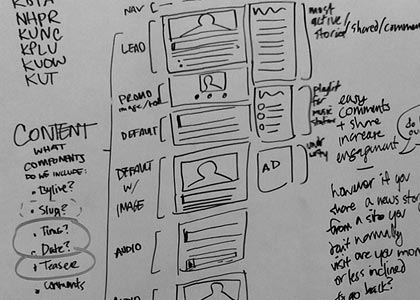 NHPR
KUNC
KPLU
KUOW
KUT
CONTENT
WHAT
COMPONENTS
DO WE INCLUDE:
• Byline?
• Slug?
• Time?
• Date?
• Teaser
• Comments
NAV
LEAD
PROMO
DEFAULT
DEFAULT
W/
IMAGE
AUDIO
AD
most
active/
stories/shared/commen
playlist
for
music
stations
easy
comments
+ share
increase
engagement
do
however if you
share a news stor
from a site you
don't normally
visit are you mor
or less inclined
to go back?